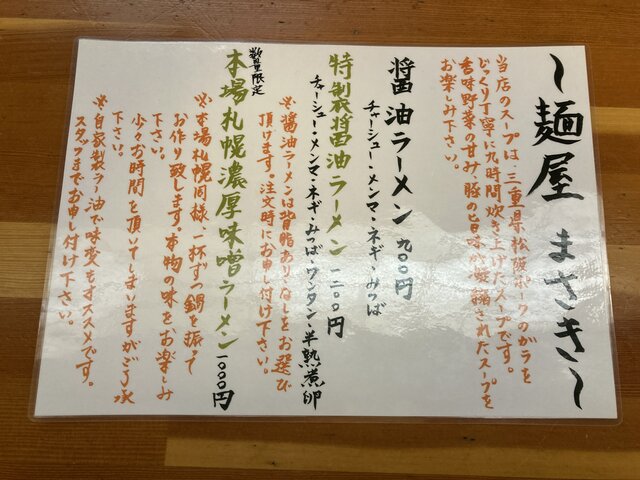 ～麺屋 まさき～
当店のスープは、三重県松阪ポークのガラを
じっくり丁寧に九時間炊き上げたスープです。
香味野菜の甘み、豚の旨味が凝縮されたスープを
お楽しみ下さい。
醤油ラーメン 九〇〇円
チャーシュー・メンマ・ネギ・みつば
特製醤油ラーメン 一二〇〇円
チャーシュー・メンマ・ネギ・みつば・ワンタン・半熟煮卵
※醤油ラーメンは背脂あり・なしをお選び
頂けます。注文時にお申し付け下さい。
数量限定
本場札幌濃厚味噌ラーメン 一〇〇〇円
※本場札幌同様、一杯ずつ鍋を振って
お作り致します。本物の味をお楽しみ
下さい。
少々お時間を頂いてしまいますがご了承
下さい。
※自家製ラー油で味変もオススメです。
スタッフまでお申し付け下さい。